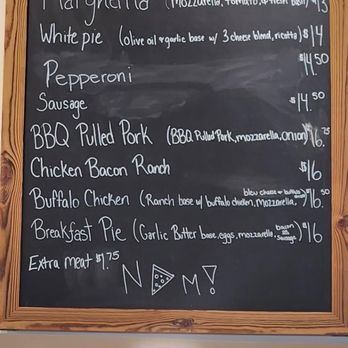 Margherita (mozzarella, tomato, & fresh basil) $13
White pie (olive oil & garlic base w/ 3 cheese blend, ricotta) $14
Pepperoni $14.50
Sausage $14.50
BBQ Pulled Pork (BBQ Pulled Pork, mozzarella, onion) $16.75
Chicken Bacon Ranch $16
Buffalo Chicken (Ranch base w/ buffalo chicken, mozzarella, bleu cheese or buffalo $16.50
Breakfast Pie (Garlic Butter base, eggs, mozzarella, bacon or sausage) $16
Extra meat $1.75
NOM!